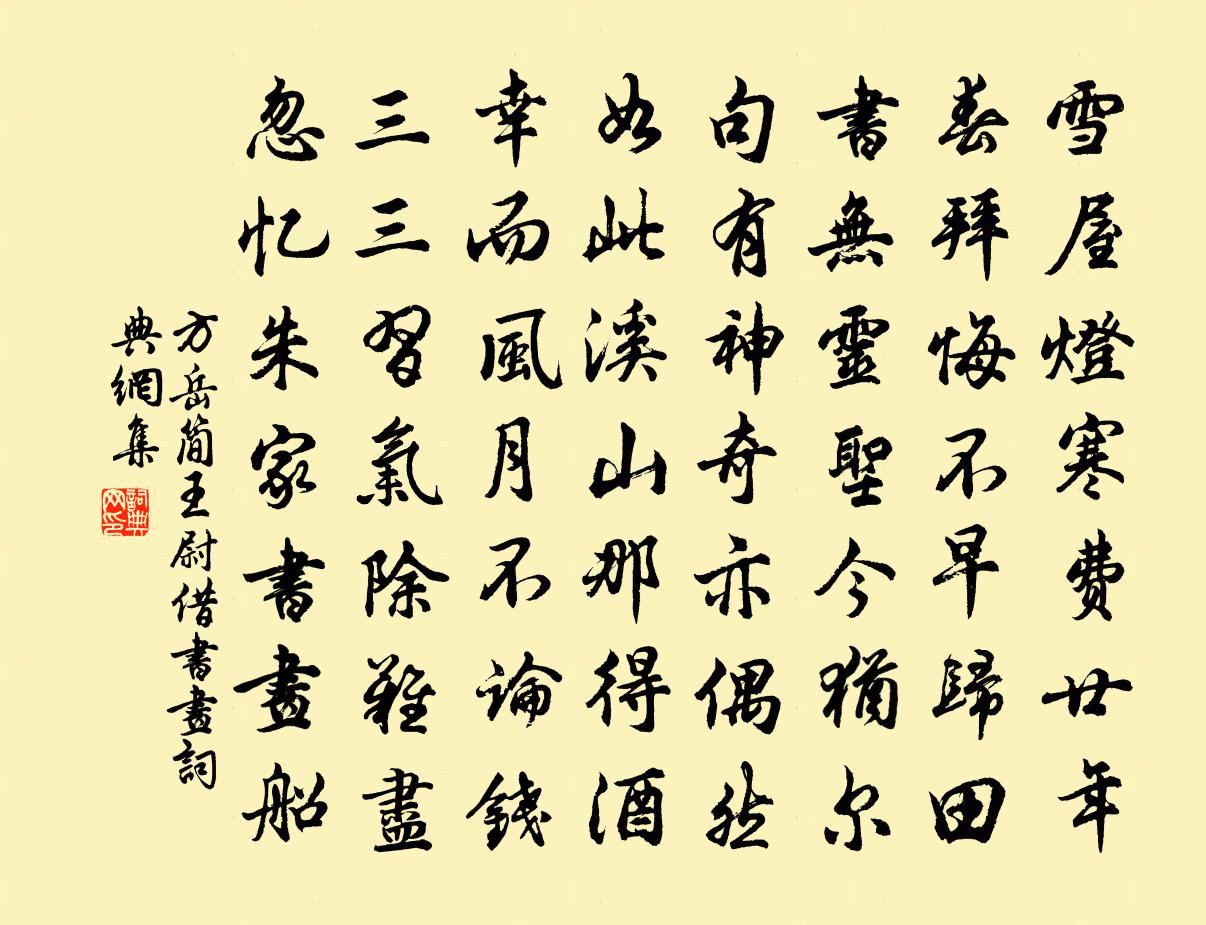 雪屋燈寒費廿年
春拜悔不早歸田
書無靈聖今猶尔
句有神奇亦偶然
如此溪山那得酒
幸而風月不論錢
三三習氣除難盡
忽忆朱家書畫船
方岳簡王尉借書畫詞
典網集
詞典
网印